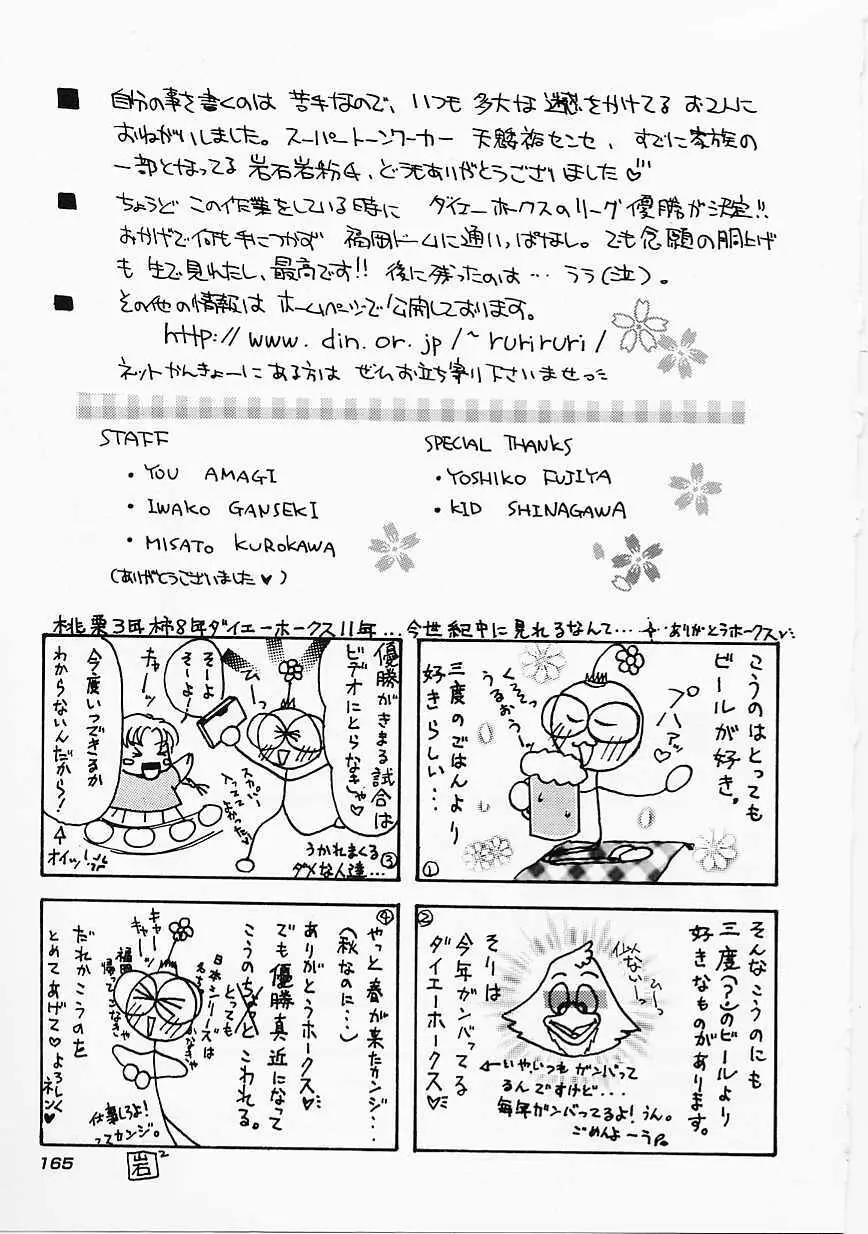 自分の事を書くのは 苦手なので、いつも 多大な 迷惑をかけてる お2人に
おねがいしました。スーパートーンワーカー 天麟裕センセ、すでに家族の
一部となってる 岩石岩粉4、どうもありがとうございました♡
ちょうど この作業をしている時に ダイエーホークスのリーグ優勝が決定!!
おかげで何も手につかず 福岡ドームに通いっぱなし。でも念願の胴上げ
も 生で見れたし、最高です!! 後に残ったのは… うう(泣)。
その他の情報は ホームページで公開しております。
http://www.din.or.jp/~ruriruri/
ネットかんきょーにある方は ぜひお立ち寄り下さいませっ
STAFF
・YOU AMAGI
・IWAKO GANSEKI
・MISATO KUROKAWA
(ありがとうございました♥)
SPECIAL THANKS
・YOSHIKO FUJIYA
・KID SHINAGAWA
桃栗3年柿8年ダイエーホークス11年…今世紀中に見れるなんて…ありがとうホークス♡
こうのはとっても
ビールが好き。
三度のごはんより
好きらしい…
プハァッ♡
くぅそっ
うるおうーっ
①
そんなこうのにも
三度(?)のビールより
好きなものがあります。
そりは
今年ガンバってる
ダイエーホークス♡
似てないーっ
ひーっ
←いや、いつもガンバって
るんですけど…
毎年ガンバってるよ!うん。
ごめんよーう
②
優勝がきまる試合は
ビデオにとらなきゃ♡
ひーっ
そーよ
そーよ!
きゃーッ
今度いつできるか
わからないんだから!
オイッ!
スカパー!
入ってて
よかった♥
うかれまくる
ダメな人達…
③
④
やっと春が来たカンジ…
(秋なのに…)
ありがとうホークス♡
でも優勝真近になって
こうのちょっと
とっても
こわれる。
日本シリーズは
福岡
帰ってこなきゃ
キャーッ
キャーッ
だれかこうのを
とめてあげて♥よろしく
ネン♥
仕事しろよ!
ってカンジ。
165
岩
2